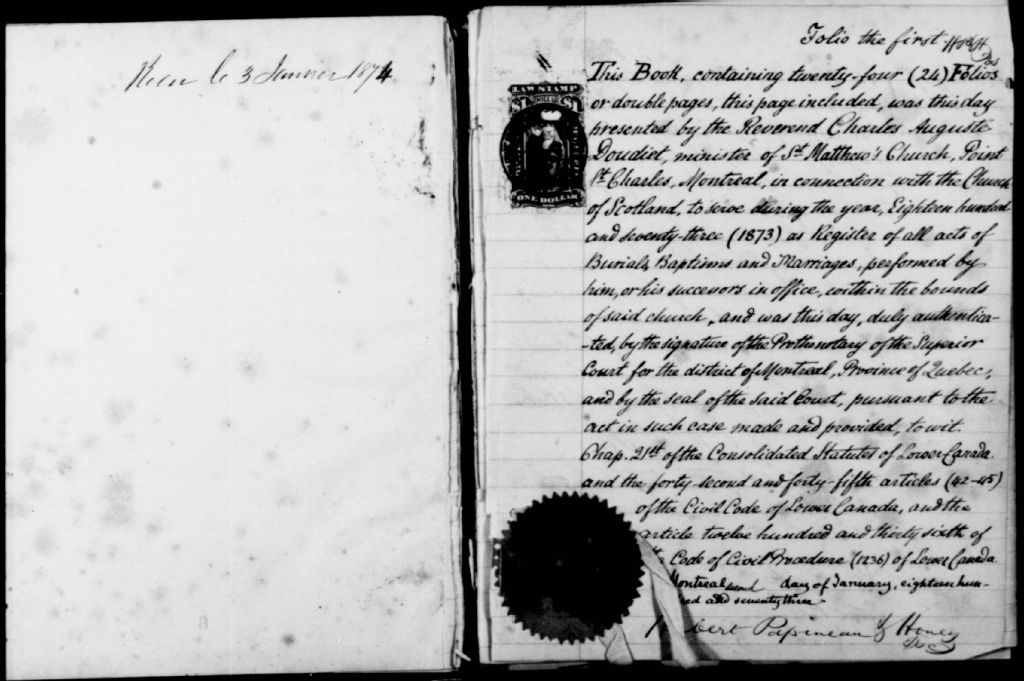 le 3 Janvier 1874
Folio the first
LAW STAMP
DOLLAR
ONE DOLLAR
This Book, containing twenty-four (24) Folios
or double pages, this page included, was this day
presented by the Reverend Charles Auguste
Doudiet, minister of St. Matthew's Church, Point
St. Charles, Montreal, in connection with the Church
of Scotland, to serve during the year, Eighteen hundred
and seventy-three (1873) as Register of all acts of
Burials, Baptisms and Marriages, performed by
him, or his successors in office, within the bounds
of said church, and was this day, duly authentica-
-ted, by the signature of the Prothonotary of the Superior
Court for the district of Montreal, Province of Quebec,
and by the seal of the said Court, pursuant to the
act in such case made and provided, to wit.
Chap. 21st of the Consolidated Statutes of Lower Canada.
and the forty-second and forty-fifth articles (42-45)
of the Civil Code of Lower Canada, and the
article twelve hundred and thirty sixth of
Code of Civil Procedure (1236) of Lower Canada.
Montreal day of January, eighteen hun-
and seventy three -
Papineau & Honey